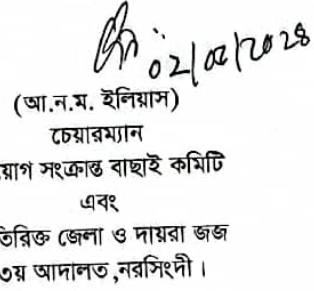 ০২/০৫/২০২৪
(আ.ন.ম. ইলিয়াস)
চেয়ারম্যান
য়োগ সংক্রান্ত বাছাই কমিটি
এবং
তিরিক্ত জেলা ও দায়রা জজ
৩য় আদালত,নরসিংদী।